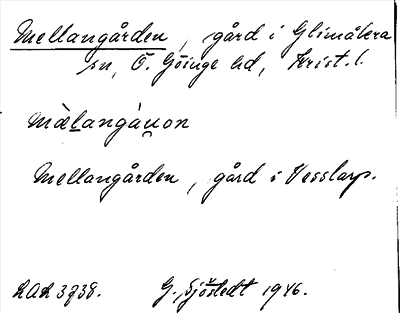 Mellangården, gård i Glimåkra
sn, Ö. Göinge hd, Krist. l.
mæ̀langáu̯on
Mellangården, gård i Vesslarp.
LAL 3738. G. Sjöstedt 1946.